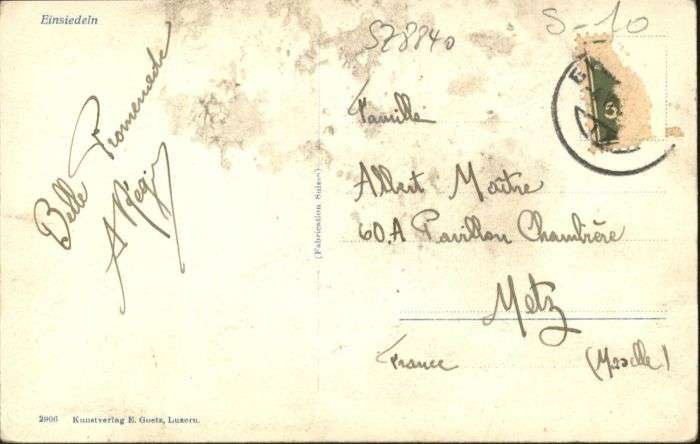 Einsiedeln
SZ8840
S-10
Belle Promenade
A Régi
Famille
Albert Maître
60.A Pavillon Chambière
Metz
France (Moselle)
(Fabrication Suisse)
2906 Kunstverlag E. Goetz, Luzern.